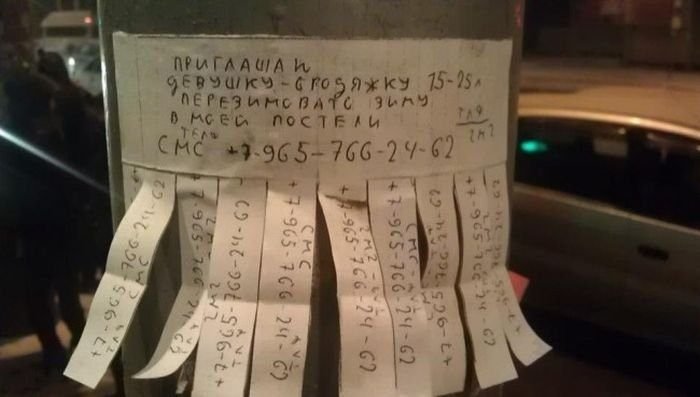 ПРИГЛАШАЮ
ДЕВУШКУ-БРОДЯЖКУ 15-25л
ПЕРЕЗИМОВАТЬ ЗИМУ
В МОЕЙ ПОСТЕЛИ
ТЛФ
СМС
ТЛФ
СМС +7-965-766-24-62
+7-965-766-24-62
СМС
ТЛФ
+7-965-766-24-62
ТЛФ
+7-965-766-24-62
СМС
ТЛФ
+7-965-766-24-62
СМС
ТЛФ
+7-965-766-24-62
СМС ТЛФ
+7-965-766-24-62
СМС ТЛФ
+7-965-766-24-62
+7-965-766-24-62